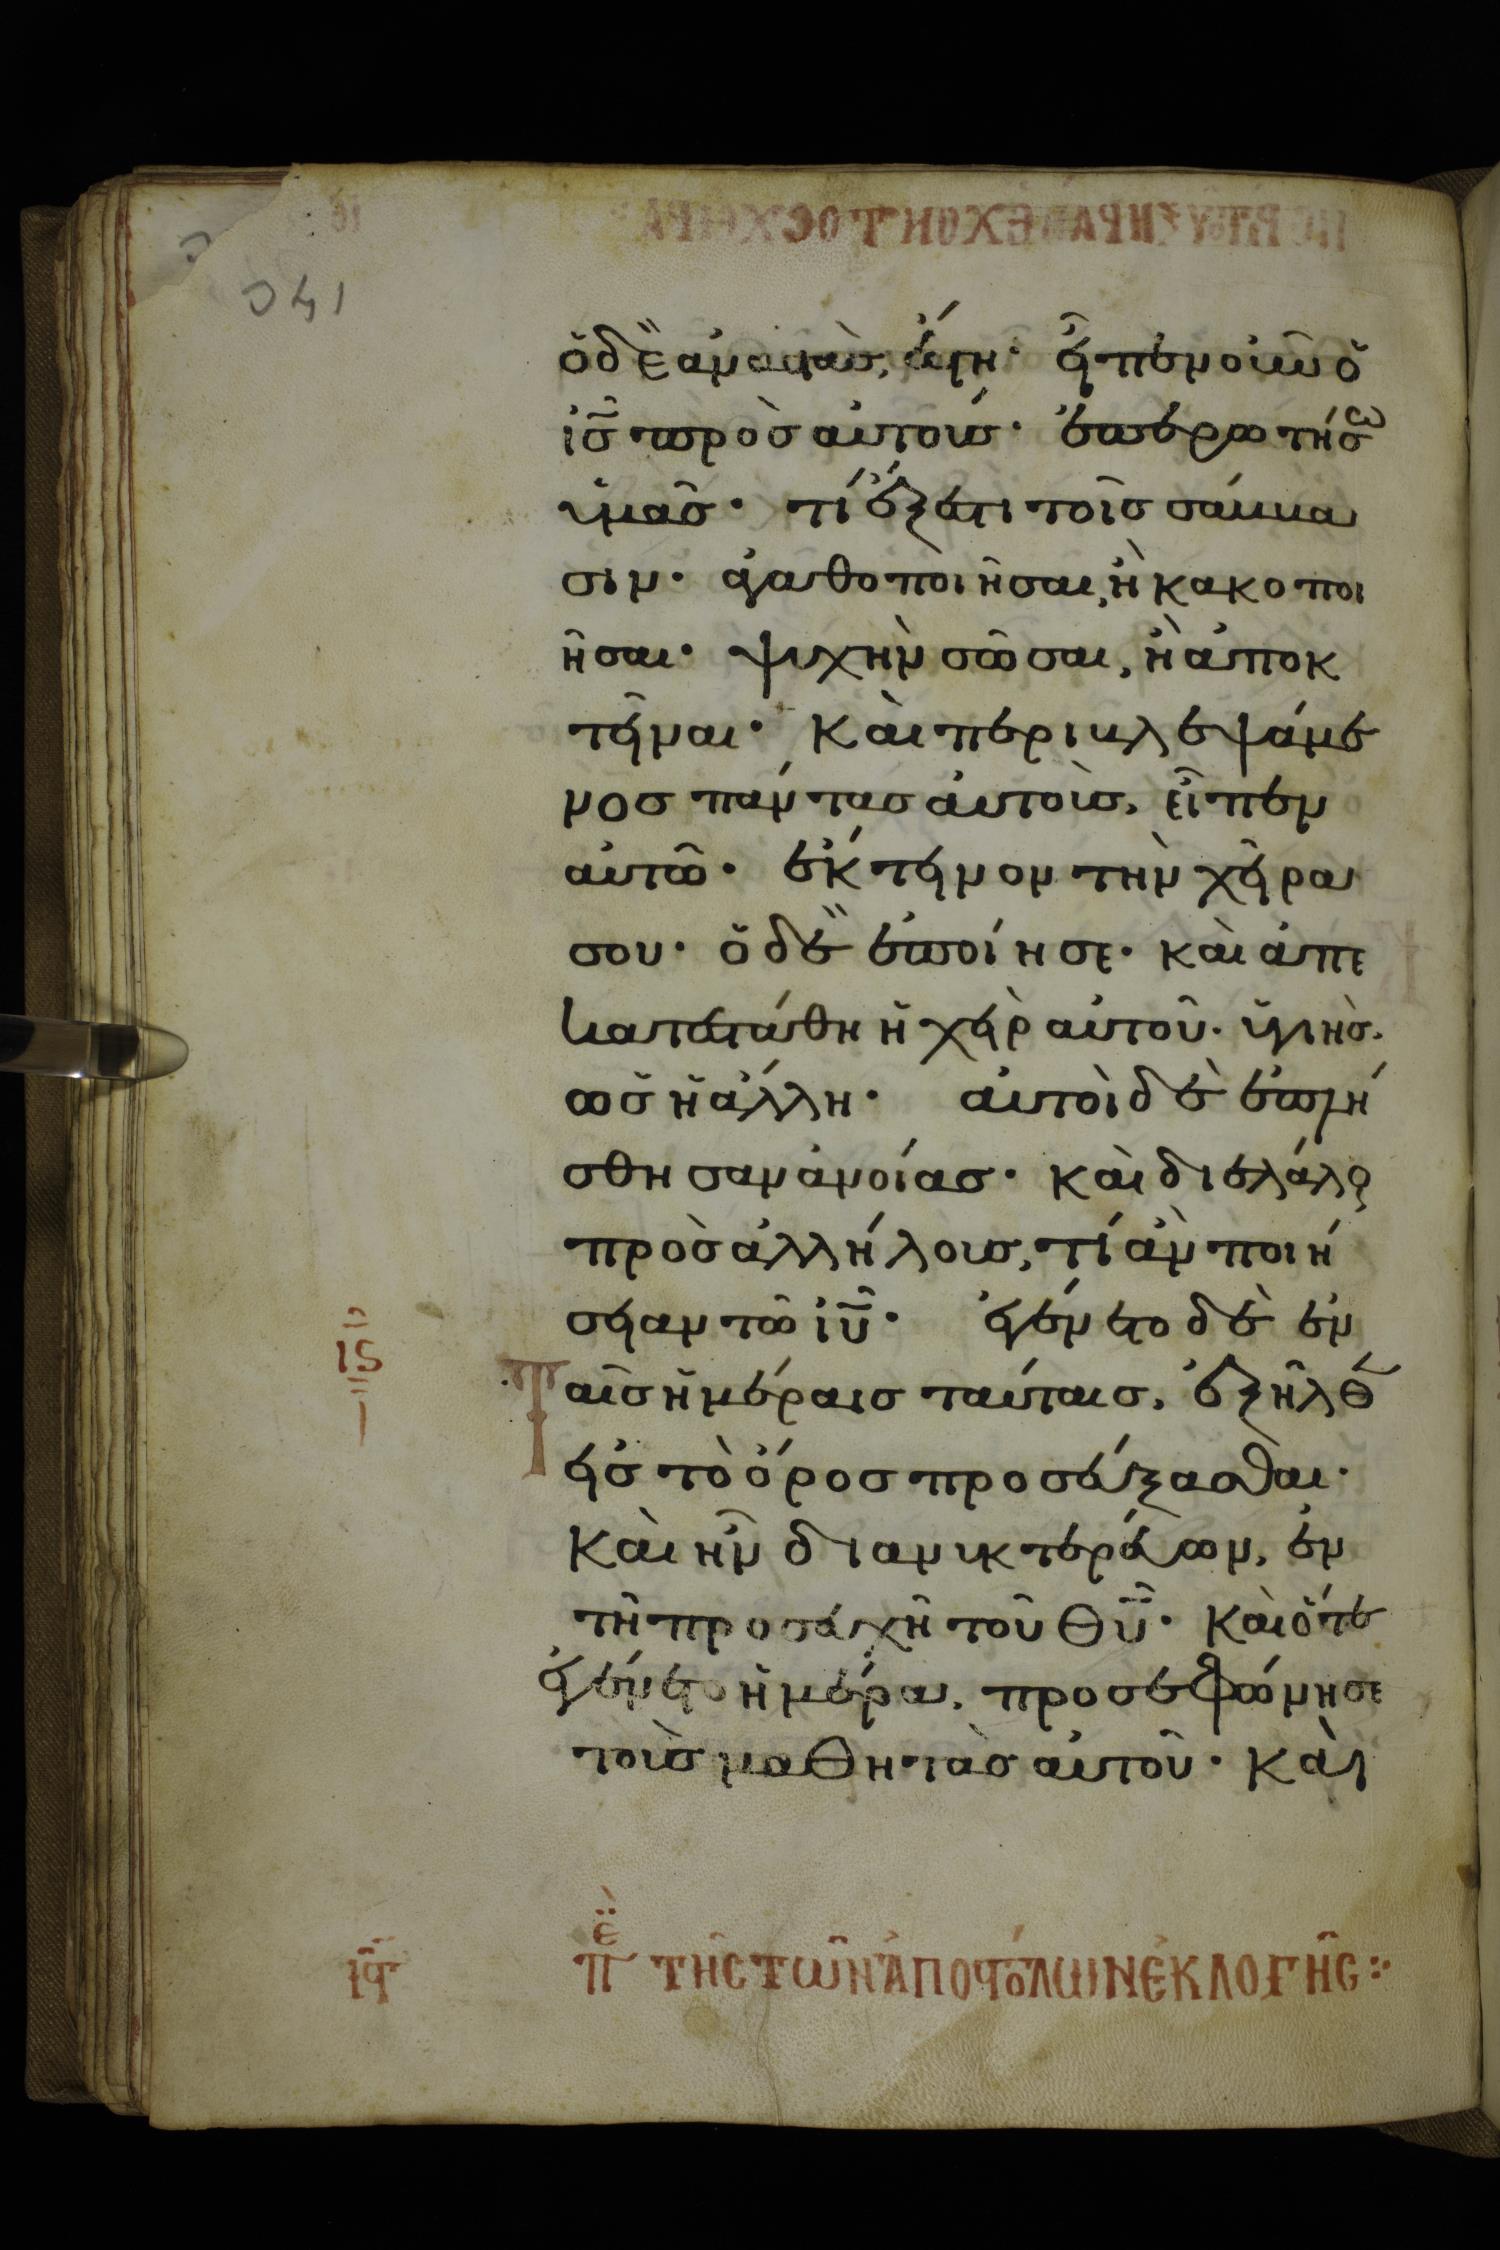 ὁ δὲ ἀναστὰς, ἔστη· εἶπεν οὖν ὁ
ις̅ πρὸσ αὐτούσ· ἐπερωτήσω
ὑμᾶσ· τί ἔξεστι τοῖσ σάββα
σιν· ἀγαθοποιῆσαι, ἢ κακοποι
ῆσαι· ψυχὴν σῶσαι, ἢ ἀποκ
τεῖναι· Καὶ περιβλεψάμε
νοσ πάντασ αὐτοὺσ, εἶπεν
αὐτῶ· ἔκτεινον τὴν χεῖρα
σου· ὁ δὲ ἐποίησε· καὶ ἀπε
κατεστάθη ἡ χεὶρ αὐτοῦ· ὑγιὴσ.
ὡσ ἡ ἄλλη· αὐτοὶ δὲ ἐπλή
σθησαν ἀνοίασ· καὶ διελάλουν
πρὸσ ἀλλήλουσ, τί ἂν ποιή
σειαν τῶ ιυ̅· ἐγένετο δὲ ἐν
ις̅
Ταῖσ ἡμέραισ ταύταισ, ἐξῆλθεν
εἰσ τὸ ὄροσ προσεύξασθαι·
Καὶ ἦν διανυκτερεύων, ἐν
τῆ προσευχῆ τοῦ Θυ̅· Καὶ ὅτε
ἐγένετο ἡμέρα, προσεφώνησε
τοὺσ μαθητὰσ αὐτοῦ· Καὶ
ΠΕ ΤΗ͂Σ ΤΩ͂Ν ἈΠΟΣΤΌΛΩΝ ἘΚΛΟΓΗ͂Σ :·